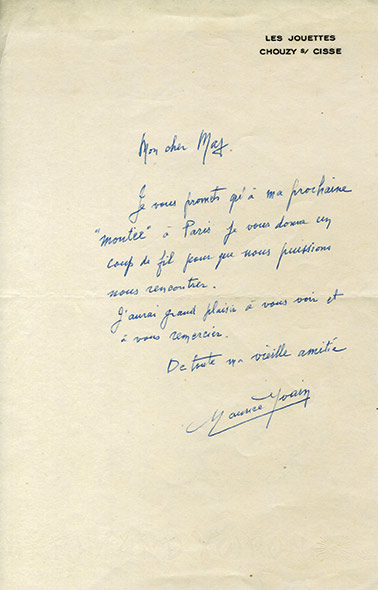 LES JOUETTES
CHOUZY s/ CISSE
Mon cher May.
Je vous promets qu'à ma prochaine
"montée" à Paris je vous donne un
coup de fil pour que nous puissions
nous rencontrer.
J'aurai grand plaisir à vous voir et
à vous remercier.
De toute ma vieille amitié
Maurice Yvain